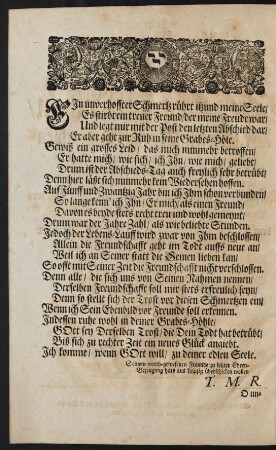 EIn unverhoffter Schmertz rührt itzund meine Seele/
Es stirbt ein treuer Freund/ der meine Freude war/
Und legt mir mit der Post den letzten Abschied dar/
Er aber geht zur Ruh in seine Grabes-Höle.
Gewiß ein grosses Leid/ das mich nunmehr betroffen/
Er hatte mich/ wie sich/ ich Ihn/ wie mich/ geliebt/
Drum ist der Abschieds-Tag auch freylich sehr betrübt/
Denn hier läst sich nunmehr kein Wiedersehen hoffen.
Auf Fünff und Zwantzig Jahr bin ich Ihm schon verbunden/
So lange kenn' ich Ihn/ Er mich/ als einen Freund/
Davon es beyde stets recht treu und wohl gemeynt/
Drum war der Jahre Zahl/ als wie beliebte Stunden.
Jedoch der Lebens Lauff wird zwar von Ihm beschlossen/
Allein die Freundschafft geht im Tod auffs neue an/
Weil ich an Seiner statt die Seinen lieben kan/
So offt mit Seiner Zeit die Freundschafft nicht verschlossen.
Denn alle/ die sich uns von Seinen Nahmen nennen/
Derselben Freundschafft soll mir stets erfreulich seyn/
Denn so stellt sich der Trost vor diesen Schmertzen ein/
Wenn ich Sein Ebenbild vor Freude soll erkennen.
Indessen ruhe wohl in deiner Grabes-Höhle/
GOtt sey Derselben Trost/ die Dein Tod hat betrübt/
Biß sich zu rechter Zeit ein neues Glück angiebt.
Ich komme/ wenn GOtt will/ zu deiner edlen Seele.
Seinem werth-gewesenen Freunde zu letzter Ehren-
Bezeigung hats aus Leipzig überschicken wollen
T. M. R.
Dun-